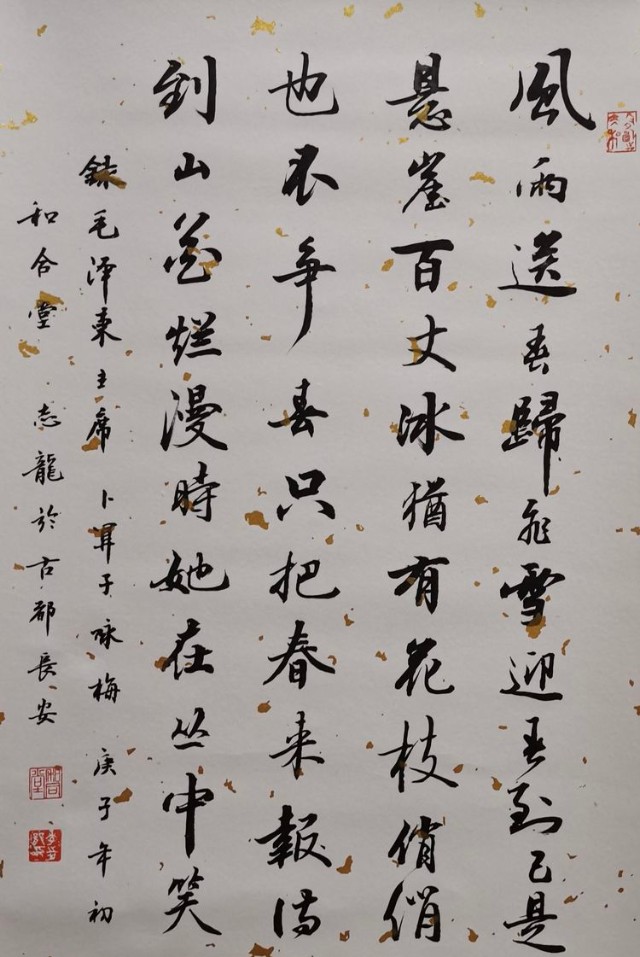 風雨送春歸飛雪迎春到已是
悬崖百丈冰猶有花枝俏俏
也不争春只把春来報待
到山花烂漫時她在丛中笑
錄毛泽東主席卜算子咏梅 庚子年初
和合堂 志龍於古都長安